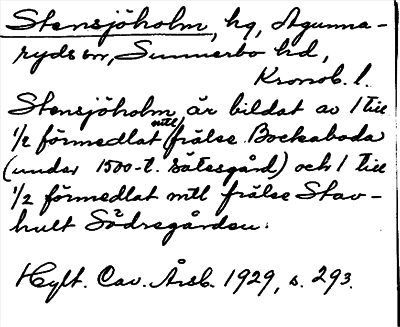 Stensjöholm, hg, Agunna-
ryds sn, Sunnerbo hd,
Kronob. l.
Stensjöholm är bildat av 1 till
1/2 förmedlat mtl frälse Bockaboda
(under 1500-t. sätesgård) och 1 till
1/2 förmedlat mtl frälse Stav-
hult Södregården.
Hylt. Cav. Årsb. 1929, s. 293.